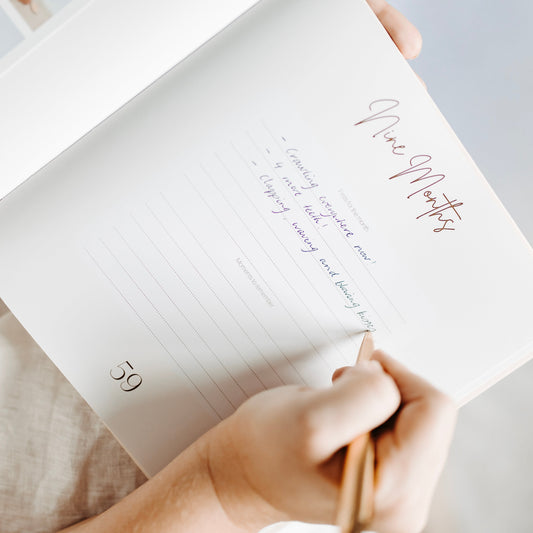 Nine Months
- Crawling everywhere now!
- 4 more teeth!
- Clapping, waving and blowing kisses
Moments to remember
59